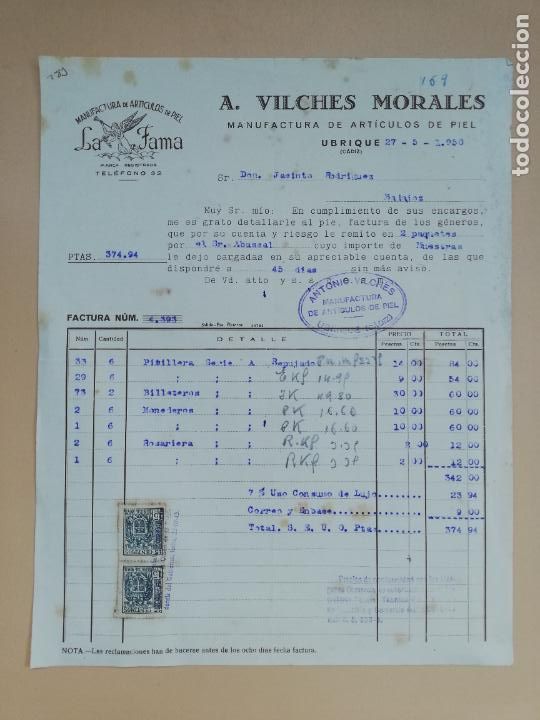 169
MANUFACTURA DE ARTICULOS DE PIEL
La Fama
MARCA REGISTRADA
TELÉFONO 32
A. VILCHES MORALES
MANUFACTURA DE ARTÍCULOS DE PIEL
UBRIQUE 27 - 5 - 1.950
(CÁDIZ)
Sr. Don. Jacinto Rodriguez
Badajoz
Muy Sr. mío: En cumplimiento de sus encargos,
me es grato detallarle al pie, factura de los géneros,
que por su cuenta y riesgo le remito en 2 paquetes
por el Sr. Abuzzal cuyo importe de Nuestras
PTAS. 374.94 le dejo cargadas en su apreciable cuenta, de las que
dispondré a 45 dias sin más aviso.
De Vd. atto y s. s.
ANTONIO VILCHES
MANUFACTURA
DE ARTICULOS DE PIEL
FACTURA NÚM. 4.393
Núm Cantidad DETALLE PRECIO TOTAL
Pesetas Cts. Pesetas Cts.
33 6 Pitillera Serie A Repujado 14 00 84 00
29 6 ; ; ; 9 00 54 00
73 2 Billeteros ; ; 30 00 60 00
2 6 Monederos ; ; 16.60 10 00 60 00
1 6 ; ; ; 16.60 10 00 60 00
2 6 Rosariera ; ; 2 00 12 00
1 6 ; ; ; 2 00 12 00
342 00
7 % Uso Consumo de Lujo 23 94
Correo y Enbase 9 00
Total. S. E. U. O. Ptas 374 94
NOTA.—Las reclamaciones han de hacerse antes de los ocho días fecha factura.
todocoleccion.net